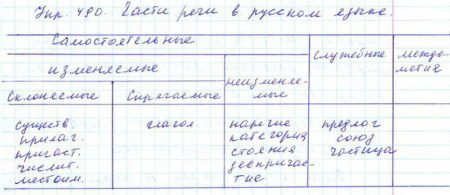 Упр. 490. Части речи в русском языке.
Самостоятельные
служебные
междо-
метия
изменяемые
неизменяе-
мые
Склоняемые
Спрягаемые
существ.
прилаг.
причаст.
числит.
местоим.
глагол
наречие
категория
стояния
деепричас-
тие
предлог
союз
частица